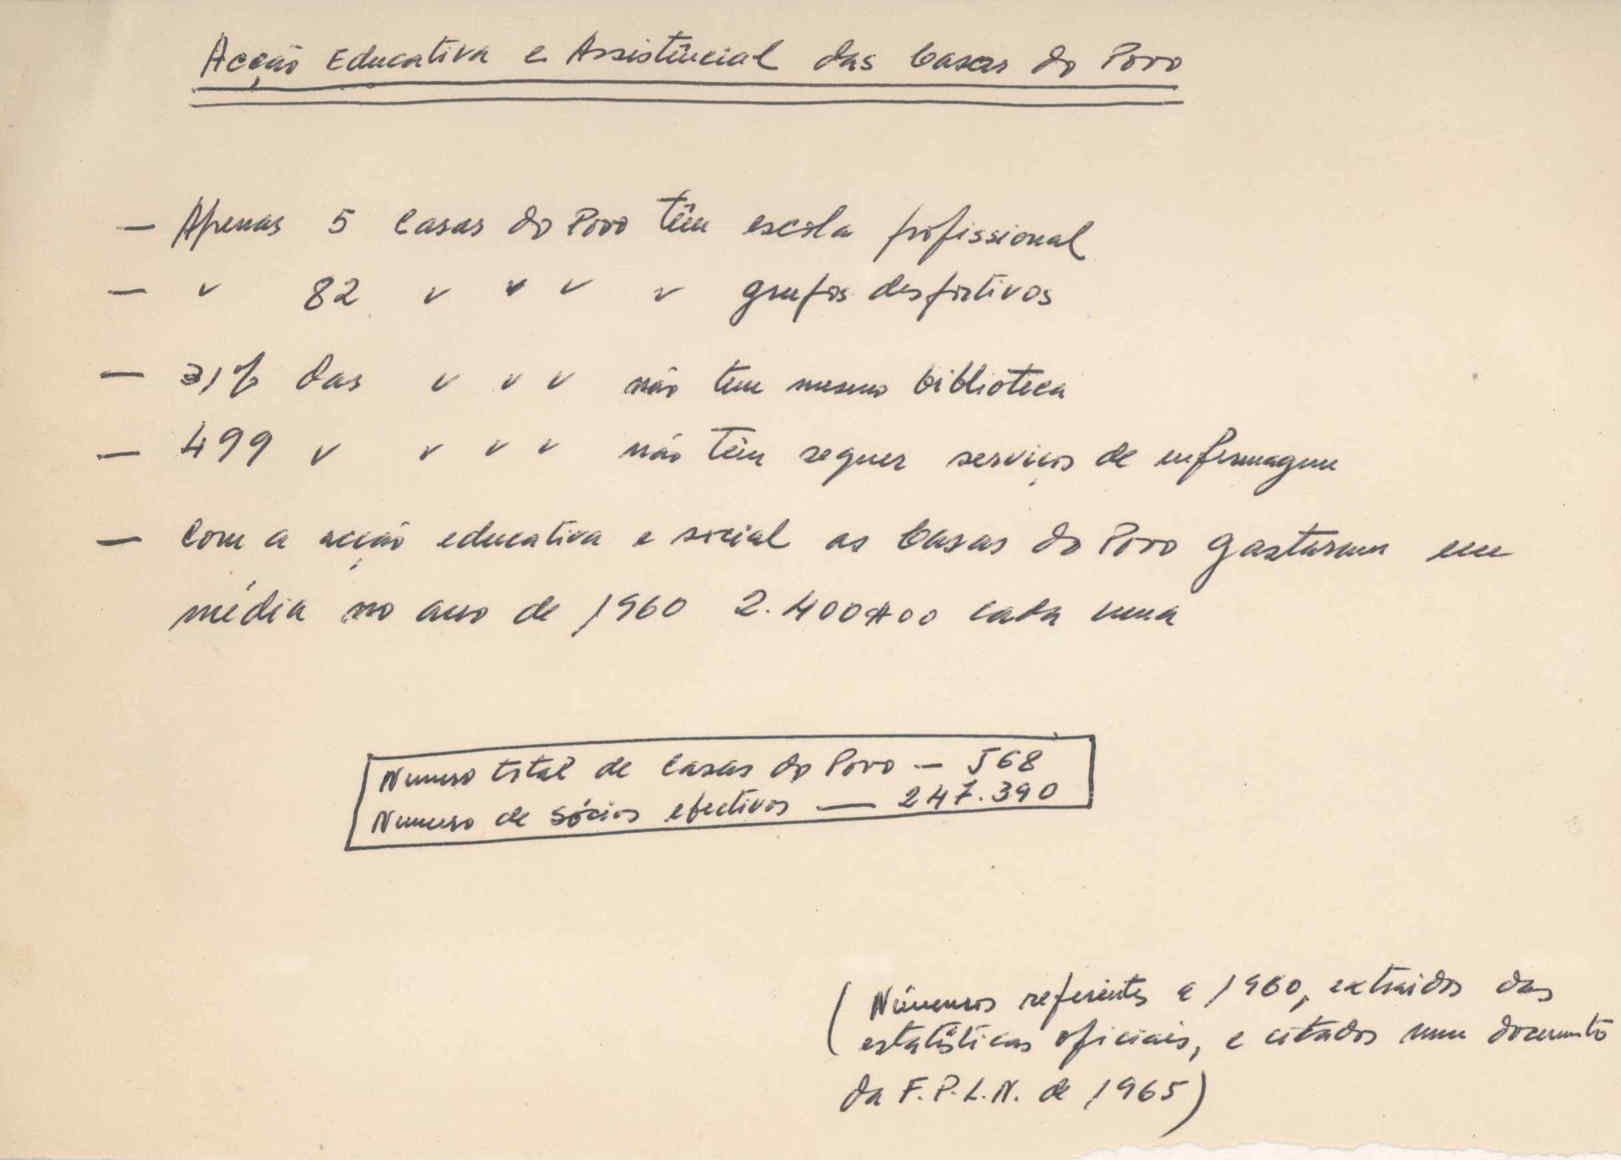 Acção Educativa e Assistêncial das Casas do Povo
— Apenas 5 Casas do Povo têm escola profissional
— " 82 " " " " grupos desportivos
— 31% das " " " não tem mesmo biblioteca
— 499 " " " " não têm sequer serviços de enfermagem
— Com a acção educativa e social as Casas do Povo gastaram em
média no ano de 1960 2.400$00 cada uma
Numero total de Casas do Povo — 568
Numero de sócios efectivos — 247.390
(Números referentes a 1960, extraidos das
estatísticas oficiais, e citados num documento
da F.P.L.N. de 1965)